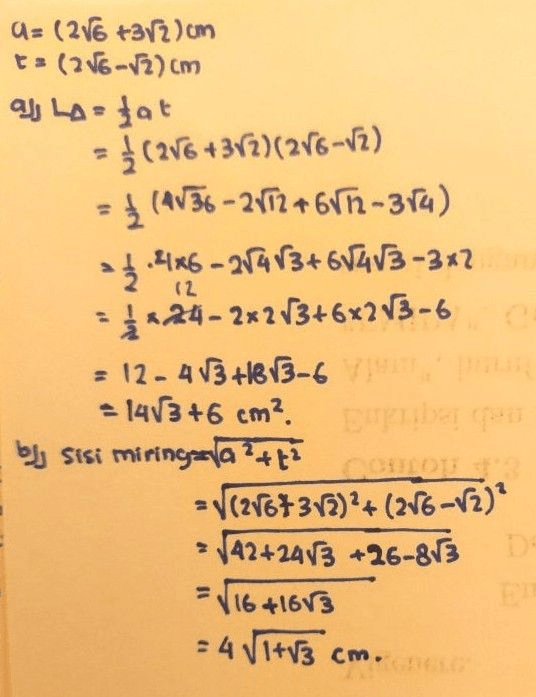 a = (2√6 + 3√2) cm
t = (2√6 - √2) cm
a)) L△ = 1/2 a t
= 1/2 (2√6 + 3√2)(2√6 - √2)
= 1/2 (4√36 - 2√12 + 6√12 - 3√4)
= 1/2 . 4×6 - 2√4√3 + 6√4√3 - 3×2
12
= 1/2 × 24 - 2×2√3 + 6×2√3 - 6
= 12 - 4√3 + 18√3 - 6
= 14√3 + 6 cm².
b)) sisi miring = √a² + t²
= √(2√6 + 3√2)² + (2√6 - √2)²
= √42 + 24√3 + 26 - 8√3
= √16 + 16√3
= 4 √1+√3 cm.